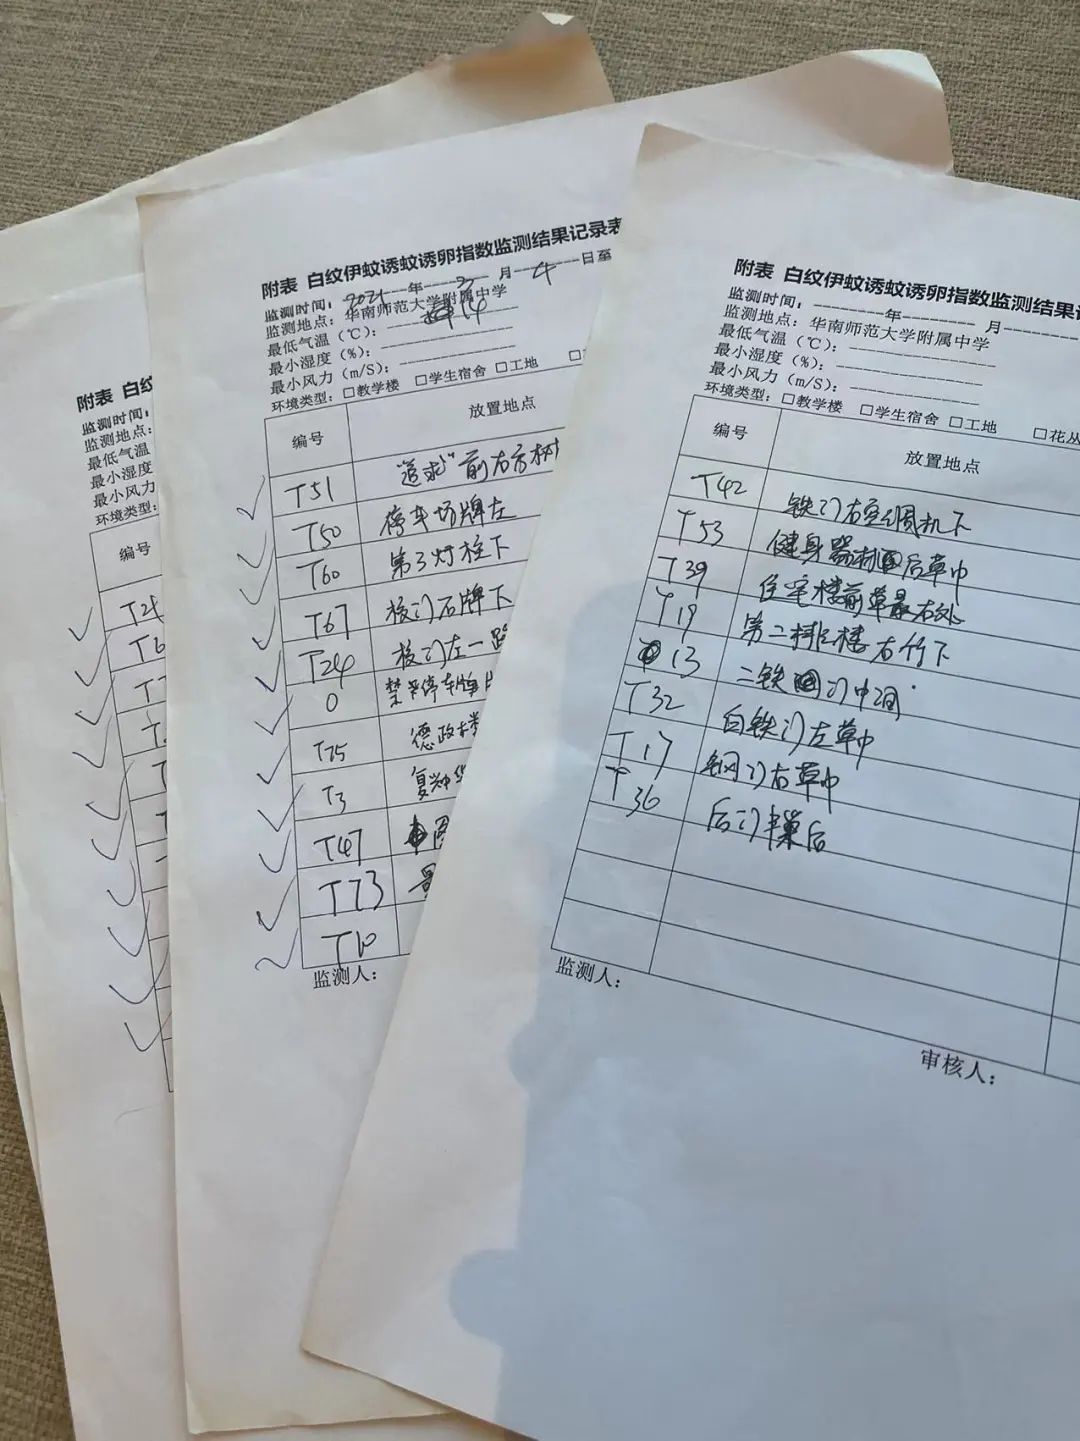 附表 白纹
监测时间：
监测地点：
最低气温
最小湿度
最小风力
环境类型：
编号
附表 白纹伊蚊诱蚊诱卵指数监测结果记录表
监测时间：2021年3月4日至
监测地点：华南师范大学附属中学
最低气温（℃）：14
最小湿度（%）：
最小风力（m/S）：
环境类型：□教学楼 □学生宿舍 □工地
编号 放置地点
T51 "追求"前右方树
T50 停车场牌左
T60 第3灯柱下
T67 校门石牌下
T24 校门左一路
0 禁停车牌
T75 德政楼
T3 复兴中
T47
T73
T10
监测人：
附表 白纹伊蚊诱蚊诱卵指数监测结果记
监测时间：年 月
监测地点：华南师范大学附属中学
最低气温（℃）：
最小湿度（%）：
最小风力（m/S）：
环境类型：□教学楼 □学生宿舍 □工地 □花丛
编号 放置地点
T42 铁门右空调机下
T53 健身器材后草中
T39 住宅楼前草最右处
T19 第二排楼右竹下
13 二铁门中间
T32 白铁门左草中
T17 钢门右草中
T36 后门
监测人：
审核人：